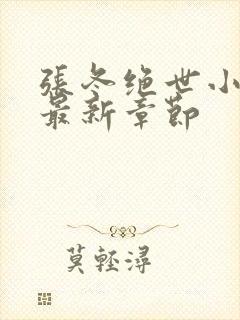 張冬绝世小
最新章節
莫輕潯